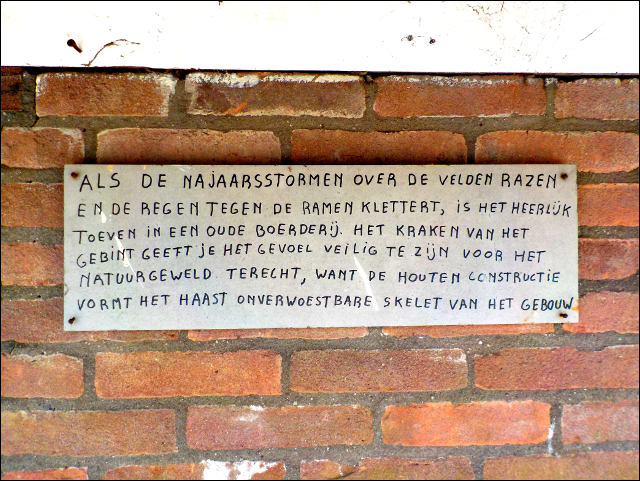 ALS DE NAJAARSSTORMEN OVER DE VELDEN RAZEN
EN DE REGEN TEGEN DE RAMEN KLETTERT, IS HET HEERLIJK
TOEVEN IN EEN OUDE BOERDERIJ. HET KRAKEN VAN HET
GEBINT GEEFT JE HET GEVOEL VEILIG TE ZIJN VOOR HET
NATUURGEWELD. TERECHT, WANT DE HOUTEN CONSTRUCTIE
VORMT HET HAAST ONVERWOESTBARE SKELET VAN HET GEBOUW